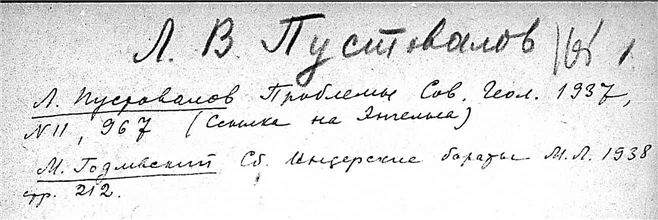 Л. В. Пустовалов
Л. Пустовалов Проблемы Сов. Геол. 1937,
N 11, 967 (Ссылка на Энгельса)
М. Годлевский Сб. Индерские бораты М.Л. 1938
стр. 212.